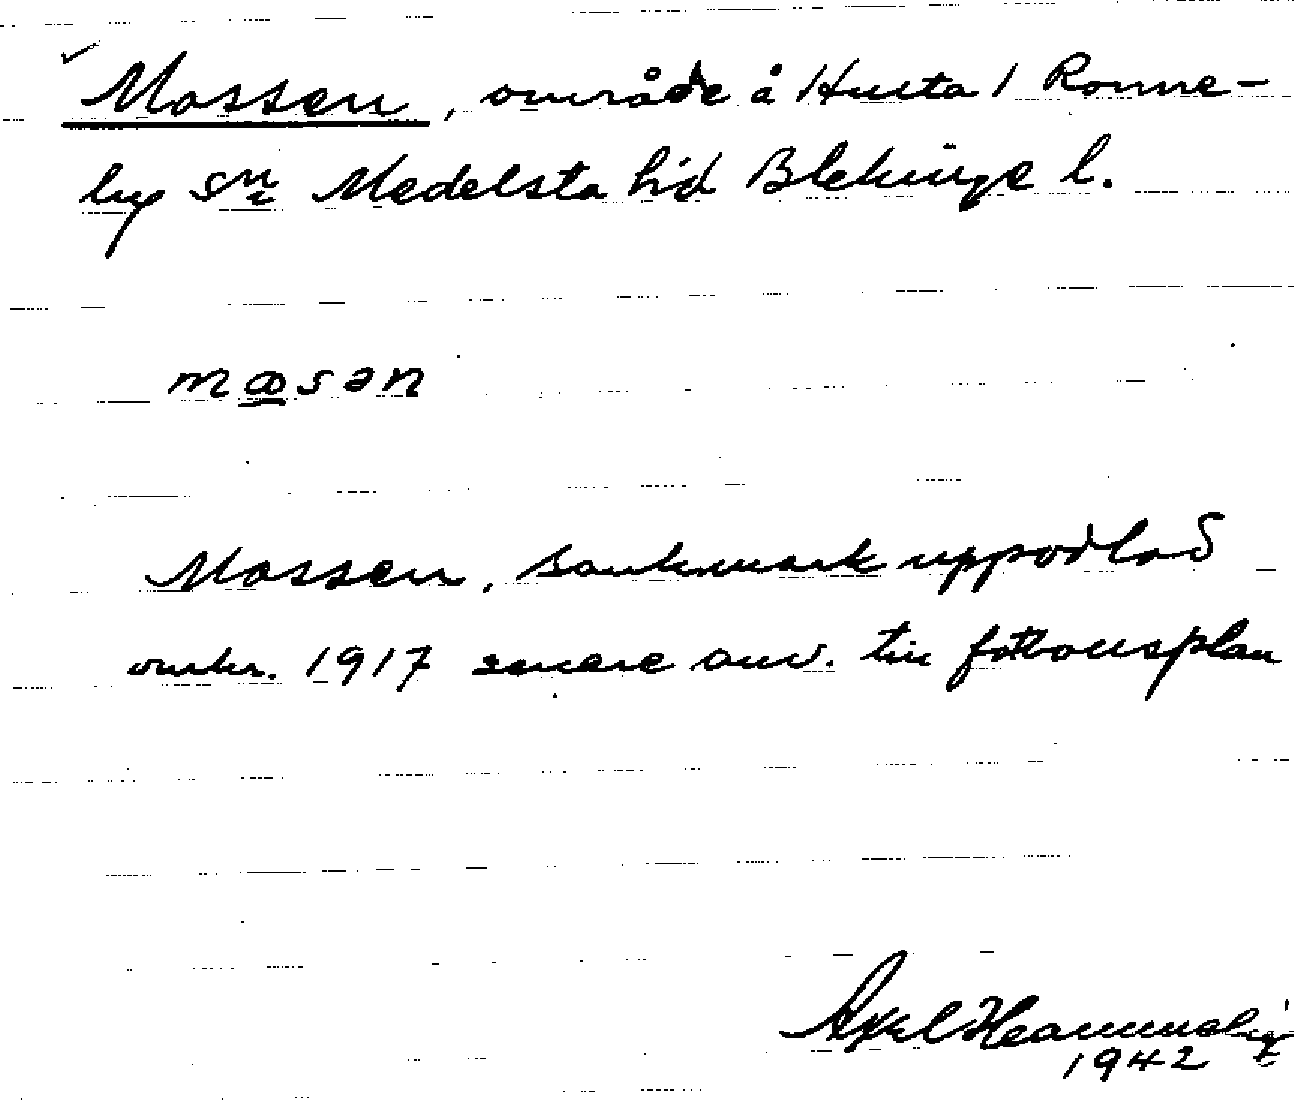 Mossen, område å Husta 1 Ronne-
by sn Medelsta hd Blekinge l.
mꝏsən
Mossen, sankmark uppodlad
omkr. 1917 senare anv. till fotbollsplan
Axel
1942